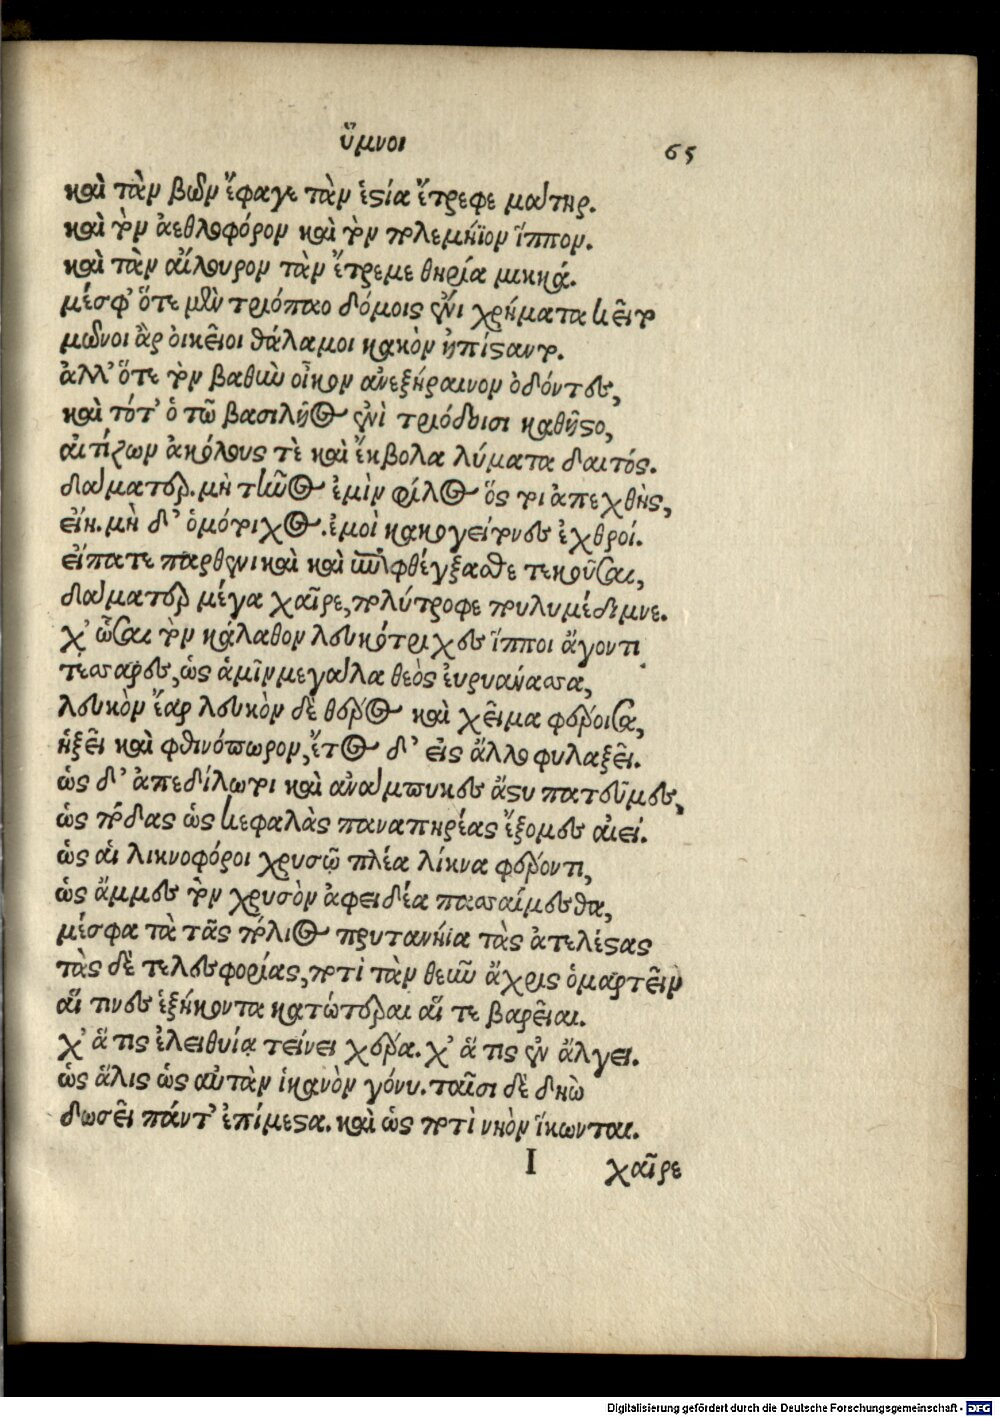 ὕμνοι 65
καὶ τὰν βῶν ἔφαγε τὰν ἑστία ἔτρεφε μάτηρ.
καὶ τὸν ἀεθλοφόρον καὶ τὸν πολεμήϊον ἵππον.
καὶ τὰν αἴλουρον τὰν ἔτρεμε θηρία μικκά.
μέσφ' ὅτε μὲν τριόπαο δόμοις ἔνι χρήματα κεῖτο
μῶνοι ἂρ ὀικεῖοι θάλαμοι κακὸν ἠπίσαντο.
ἀλλ' ὅτε τὸν βαθὺν οἶκον ἀνεξήραινον ὀδόντες,
καὶ τότ' ὁ τῶ βασιλῆος ἐνὶ τριόδοισι καθῆστο,
αἰτίζων ἀκόλους τὲ καὶ ἔκβολα λύματα δαιτός.
δάματερ. μὴ τῆνος ἐμὶν φίλος ὅς τοι ἀπεχθὴς,
εἴη. μὴ δ' ὁμότοιχος. ἐμοὶ κακογείτονες ἐχθροί.
εἴπατε παρθενικαὶ καὶ ἐπιφθέγξασθε τεκοῦσαι,
δάματερ μέγα χαῖρε, πολύτροφε πουλυμέδιμνε.
χ' ὧσαι τὸν κάλαθον λευκότριχες ἵπποι ἄγοντι
τέσσαρες, ὡς ἁμῖν μεγάλα θεὸς ἐυρυάνασσα,
λευκὸν ἔαρ λευκὸν δὲ θέρος καὶ χεῖμα φέροισα,
ἡξεῖ καὶ φθινόπωρον, ἔτος δ' εἰς ἄλλο φυλαξεῖ.
ὡς δ' ἀπεδίλωτοι καὶ ἀνάμπυκες ἄστυ πατεῦμες,
ὡς πόδας ὡς κεφαλὰς παναπηρέας ἕξομες αἰεί.
ὡς αἱ λικνοφόροι χρυσῶ πλέα λίκνα φέροντι,
ὡς ἄμμες τὸν χρυσὸν ἀφειδέα πασσαίμεσθα,
μέσφα τὰ τᾶς πόλιος πρυτανήϊα τὰς ἀτελέστας
τὰς δὲ τελεσφορίας, ποτὶ τὰν θεῦν ἄχρις ὁμαρτεῖν
αἵ τινες ἑξήκοντα κατώτεραι αἵ τε βαρεῖαι.
χ' ἅ τις ἐλειθυίᾳ τείνει χέρα. χ' ἅ τις ἐν ἄλγει.
ὡς ἅλις ὡς αὐτὰν ἱκανὸν γόνυ. ταῖσι δὲ δηὼ
δωσεῖ πάντ' ἐπίμεστα. καὶ ὡς ποτὶ νηὸν ἵκωνται.
I χαῖρε
Digitalisierung gefördert durch die Deutsche Forschungsgemeinschaft - DFG